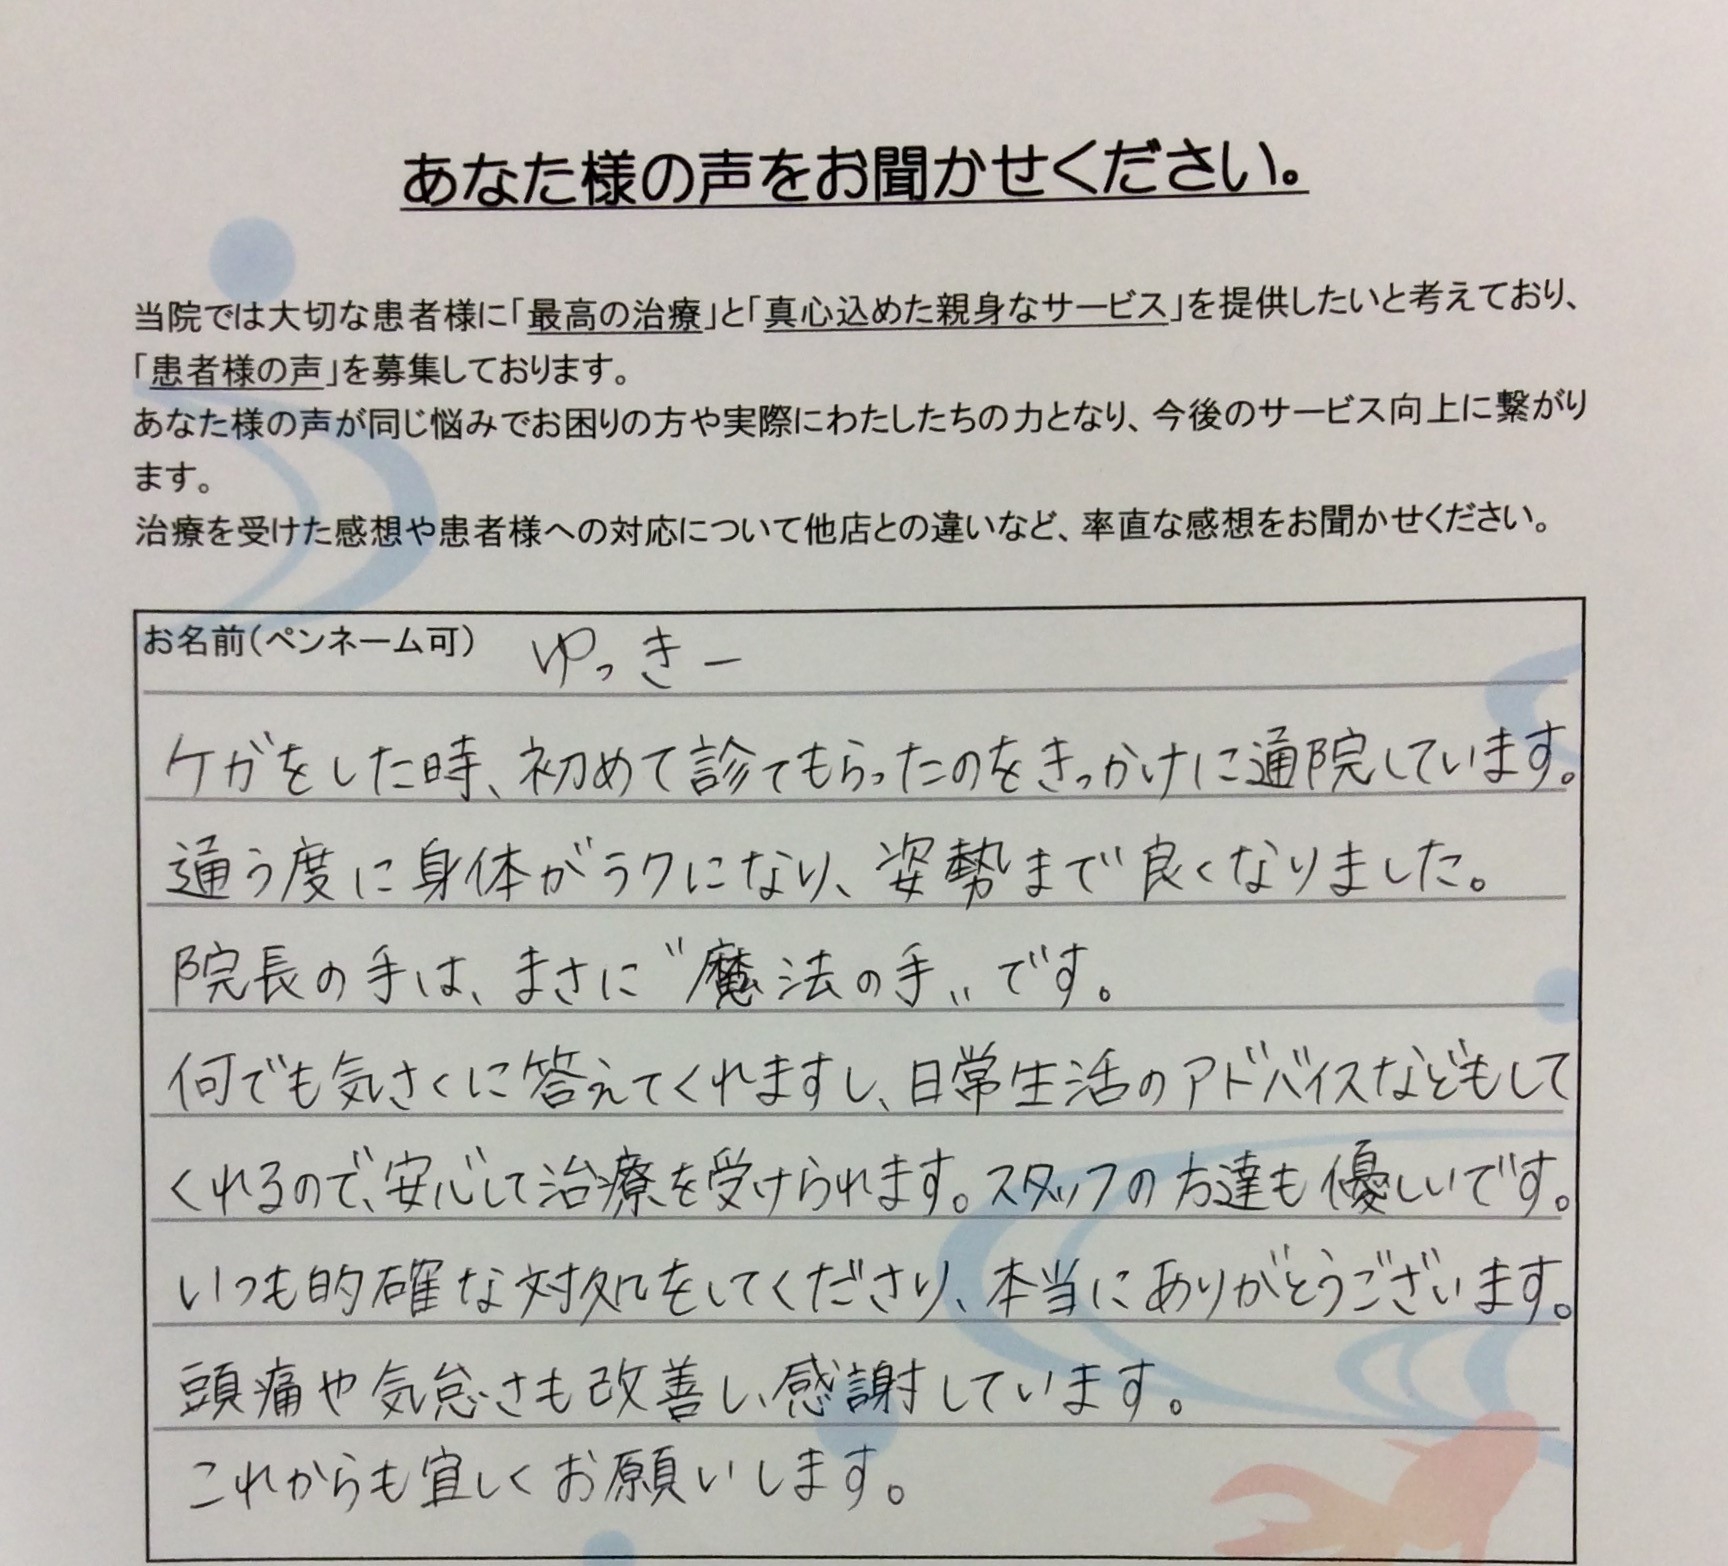 あなた様の声をお聞かせください。
当院では大切な患者様に「最高の治療」と「真心込めた親身なサービス」を提供したいと考えており、
「患者様の声」を募集しております。
あなた様の声が同じ悩みでお困りの方や実際にわたしたちの力となり、今後のサービス向上に繋がり
ます。
治療を受けた感想や患者様への対応について他店との違いなど、率直な感想をお聞かせください。
お名前(ペンネーム可) ゆっきー
ケガをした時、初めて診てもらったのをきっかけに通院しています。
通う度に身体がラクになり、姿勢まで良くなりました。
院長の手は、まさに〝魔法の手〟です。
何でも気さくに答えてくれますし、日常生活のアドバイスなどもして
くれるので、安心して治療を受けられます。スタッフの方達も優しいです。
いつも的確な対処をしてくださり、本当にありがとうございます。
頭痛や気怠さも改善し、感謝しています。
これからも宜しくお願いします。